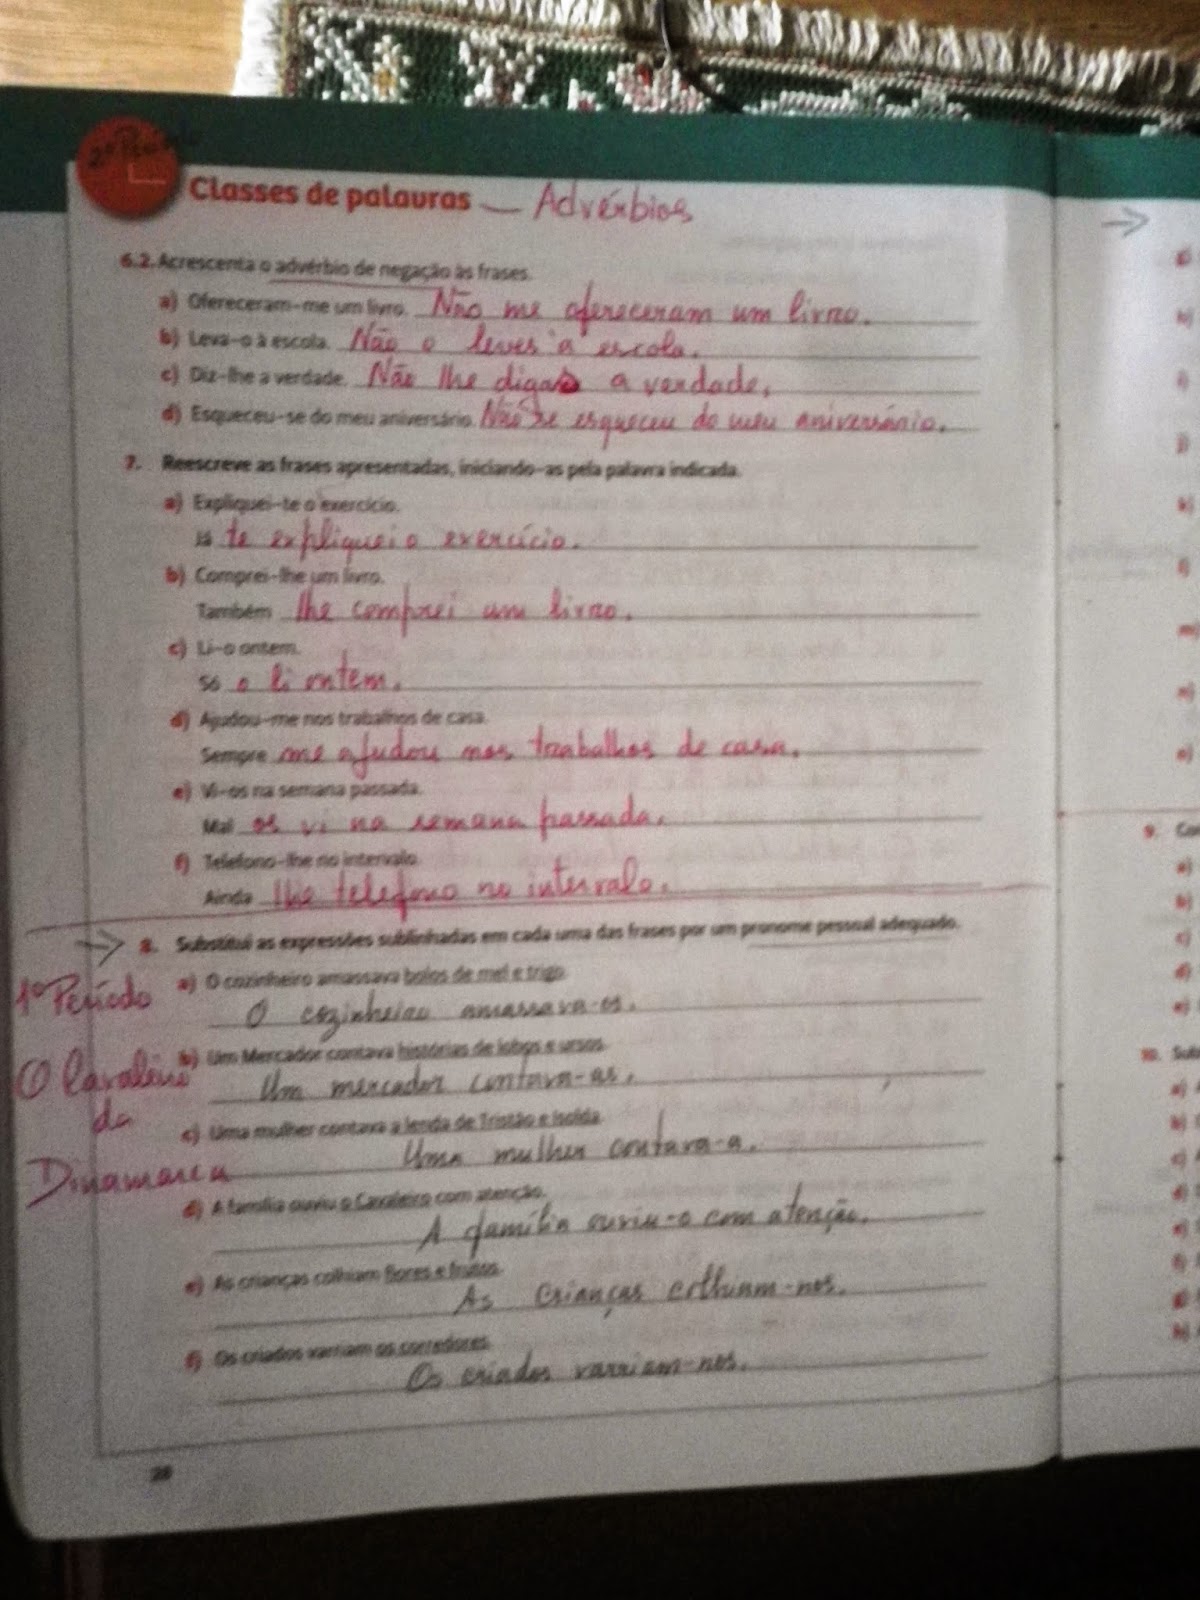 2º Período
Classes de palavras — Advérbios
6.2. Acrescenta o advérbio de negação às frases.
a) Ofereceram-me um livro. Não me ofereceram um livro.
b) Leva-o à escola. Não o leves à escola.
c) Diz-lhe a verdade. Não lhe digas a verdade.
d) Esqueceu-se do meu aniversário. Não se esqueceu do meu aniversário.
7. Reescreve as frases apresentadas, iniciando-as pela palavra indicada.
a) Expliquei-te o exercício.
Já te expliquei o exercício.
b) Comprei-lhe um livro.
Também lhe comprei um livro.
c) Li-o ontem.
Só o li ontem.
d) Ajudou-me nos trabalhos de casa.
Sempre me ajudou nos trabalhos de casa.
e) Vi-os na semana passada.
Mal os vi na semana passada.
f) Telefono-lhe no intervalo.
Ainda lhe telefono no intervalo.
8. Substitui as expressões sublinhadas em cada uma das frases por um pronome pessoal adequado.
1º Período
a) O cozinheiro amassava bolos de mel e trigo.
O cozinheiro amassava-os.
O Cavaleiro
da
Dinamarca
b) Um Mercador contava histórias de lobos e ursos.
Um mercador contava-as.
c) Uma mulher contava a lenda de Tristão e Isolda.
Uma mulher contava-a.
d) A família ouviu o Cavaleiro com atenção.
A família ouviu-o com atenção.
e) As crianças colhiam flores e frutos.
As crianças colhiam-nos.
f) Os criados varriam os corredores.
Os criados varriam-nos.
28
9. Co
a)
b)
c)
d)
e)
10. Sub
a)
b)
c)
d)
e)
f)
g)
h)